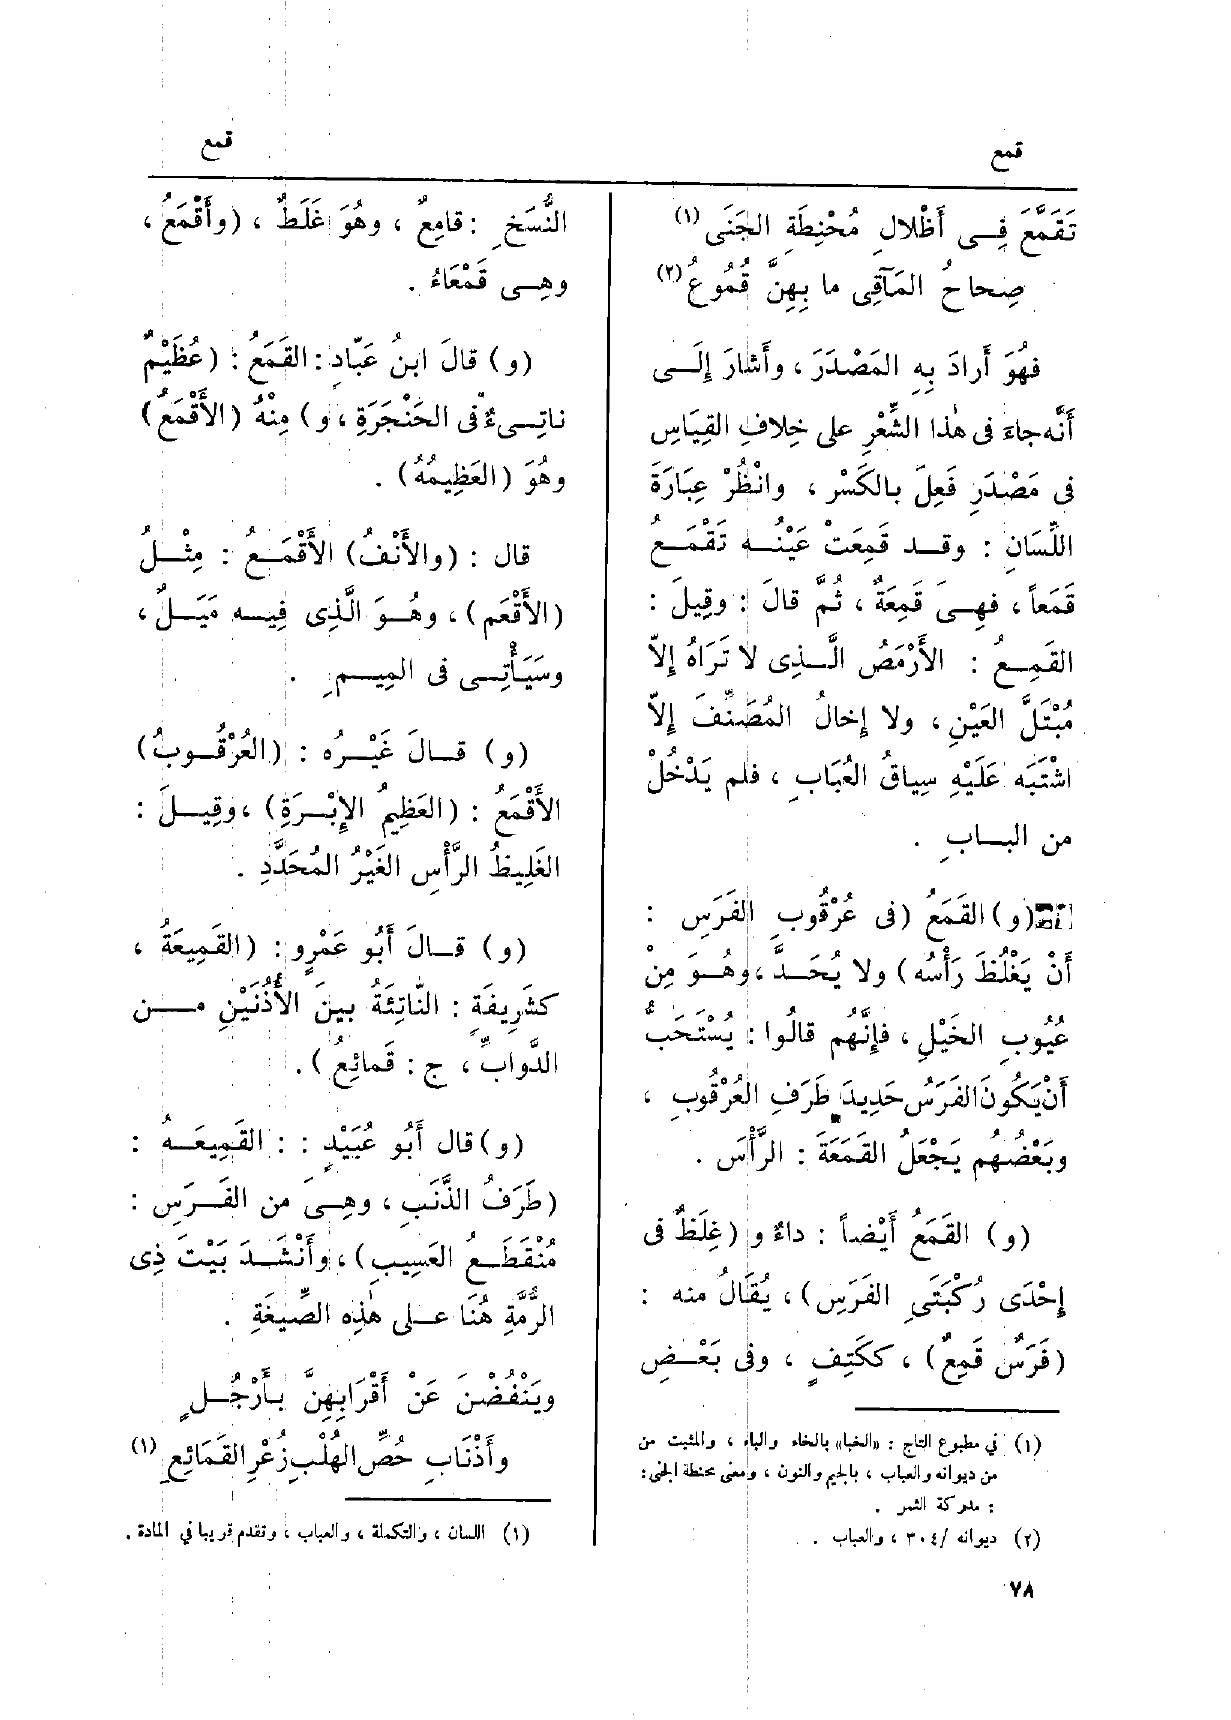 قمع
قمع
تَقَمَّعَ فِى أَظْلالِ مُحْنِطَةِ الجَنَى (١)
صِحاحُ المَآقِى ما بِهِنَّ قُمُوعُ (٢)
فهُوَ أَرادَ بِهِ المَصْدَرَ ، وأَشارَ إِلَى
أَنَّه جاءَ فى هٰذا الشِّعْرِ على خِلافِ القِيَاسِ
فى مَصْدَرِ فَعِلَ بالكَسْر ، وانْظُرْ عِبَارَةَ
اللِّسَانِ : وقد قَمِعَتْ عَيْنُه تَقْمَعُ
قَمَعاً ، فهِىَ قَمِعَةٌ ، ثُمَّ قالَ : وقِيلَ :
القَمِعُ : الأَرْمَصُ الَّذِى لا تَرَاهُ إِلاّ
مُبْتَلَّ العَيْنِ ، ولا إِخالُ المُصَنِّفَ إِلاّ
اشْتَبَه عَلَيْهِ سِياقُ العُبَابِ ، فلم يَدْخُلْ
من البابِ .
(و) القَمَعُ (فى عُرْقُوبِ الفَرَسِ :
أَنْ يَغْلُظَ رَأْسُه) ولا يُحَدَّ ، وهُوَ مِنْ
عُيُوبِ الخَيْلِ ، فإِنَّهم قالُوا : يُسْتَحَبُّ
أَنْ يَكُونَ الفَرَسُ حَدِيدَ طَرَفِ العُرْقُوبِ ،
وبَعْضُهم يَجْعَلُ القَمَعَةَ : الرَّأْسَ .
(و) القَمَعُ أَيْضاً : داءٌ و (غِلَظٌ فى
إِحْدَى رُكْبَتَىِ الفَرَسِ) ، يُقَالُ منه :
(فَرَسٌ قَمِعٌ) ، ككَتِفٍ ، وفى بَعْضِ
(١) في مطبوع التاج : «الخبا» بالخاء والباء ، والمثبت من
من ديوانه والعباب ، بالجيم والنون ، ومعنى محنطة الجنى :
: مدركة الثمر .
(٢) ديوانه /٣٠٤ ، والعباب .
٧٨
النُّسَخِ : قامِعٌ ، وهُوَ غَلَطٌ ، (وأَقْمَعُ ،
وهِى قَمْعَاءُ .
(و) قالَ ابنُ عَبّادٍ : القَمَعُ : (عُظَيْمٌ
ناتِىءٌ فى الحَنْجَرَةِ ، و) مِنْهُ (الأَقْمَعُ)
وهُوَ (العَظِيمُهُ) .
قال : (والأَنْفُ) الأَقْمَعُ : مِثْلُ
(الأَقْعَم) ، وهُوَ الَّذِى فِيه مَيَلٌ ،
وسَيَأْتِى فى المِيمِ .
(و) قالَ غَيْرُه : (العُرْقُوبُ)
الأَقْمَعُ : (العَظِيمُ الإِبْرَةِ) ، وقِيلَ :
الغَلِيظُ الرَّأْسِ الغَيْرُ المُحَدَّدِ .
(و) قالَ أَبُو عَمْرٍو : (القَمِيعَةُ ،
كشَرِيفَةٍ : النّاتِئَةُ بينَ الأُذُنَيْنِ من
الدَّوابِّ ، ج : قَمائِعُ) .
(و) قال أَبُو عُبَيْدٍ : : القَمِيعَةُ :
(طَرَفُ الذَّنَبِ ، وهِىَ من الفَرَسِ :
مُنْقَطَعُ العَسِيبِ) ، وأَنْشَدَ بَيْتَ ذِى
الرُّمَّةِ هُنَا على هٰذِه الصِّيغَةِ .
ويَنْفُضْنَ عَنْ أَقْرَابِهِنَّ بأَرْجُلٍ
وأَذْنَابِ حُصِّ الهُلْبِ زُعْرِ القَمَائِعِ (١)
(١) اللسان ، والتكملة ، والعباب ، وتقدم قريبا في المادة .